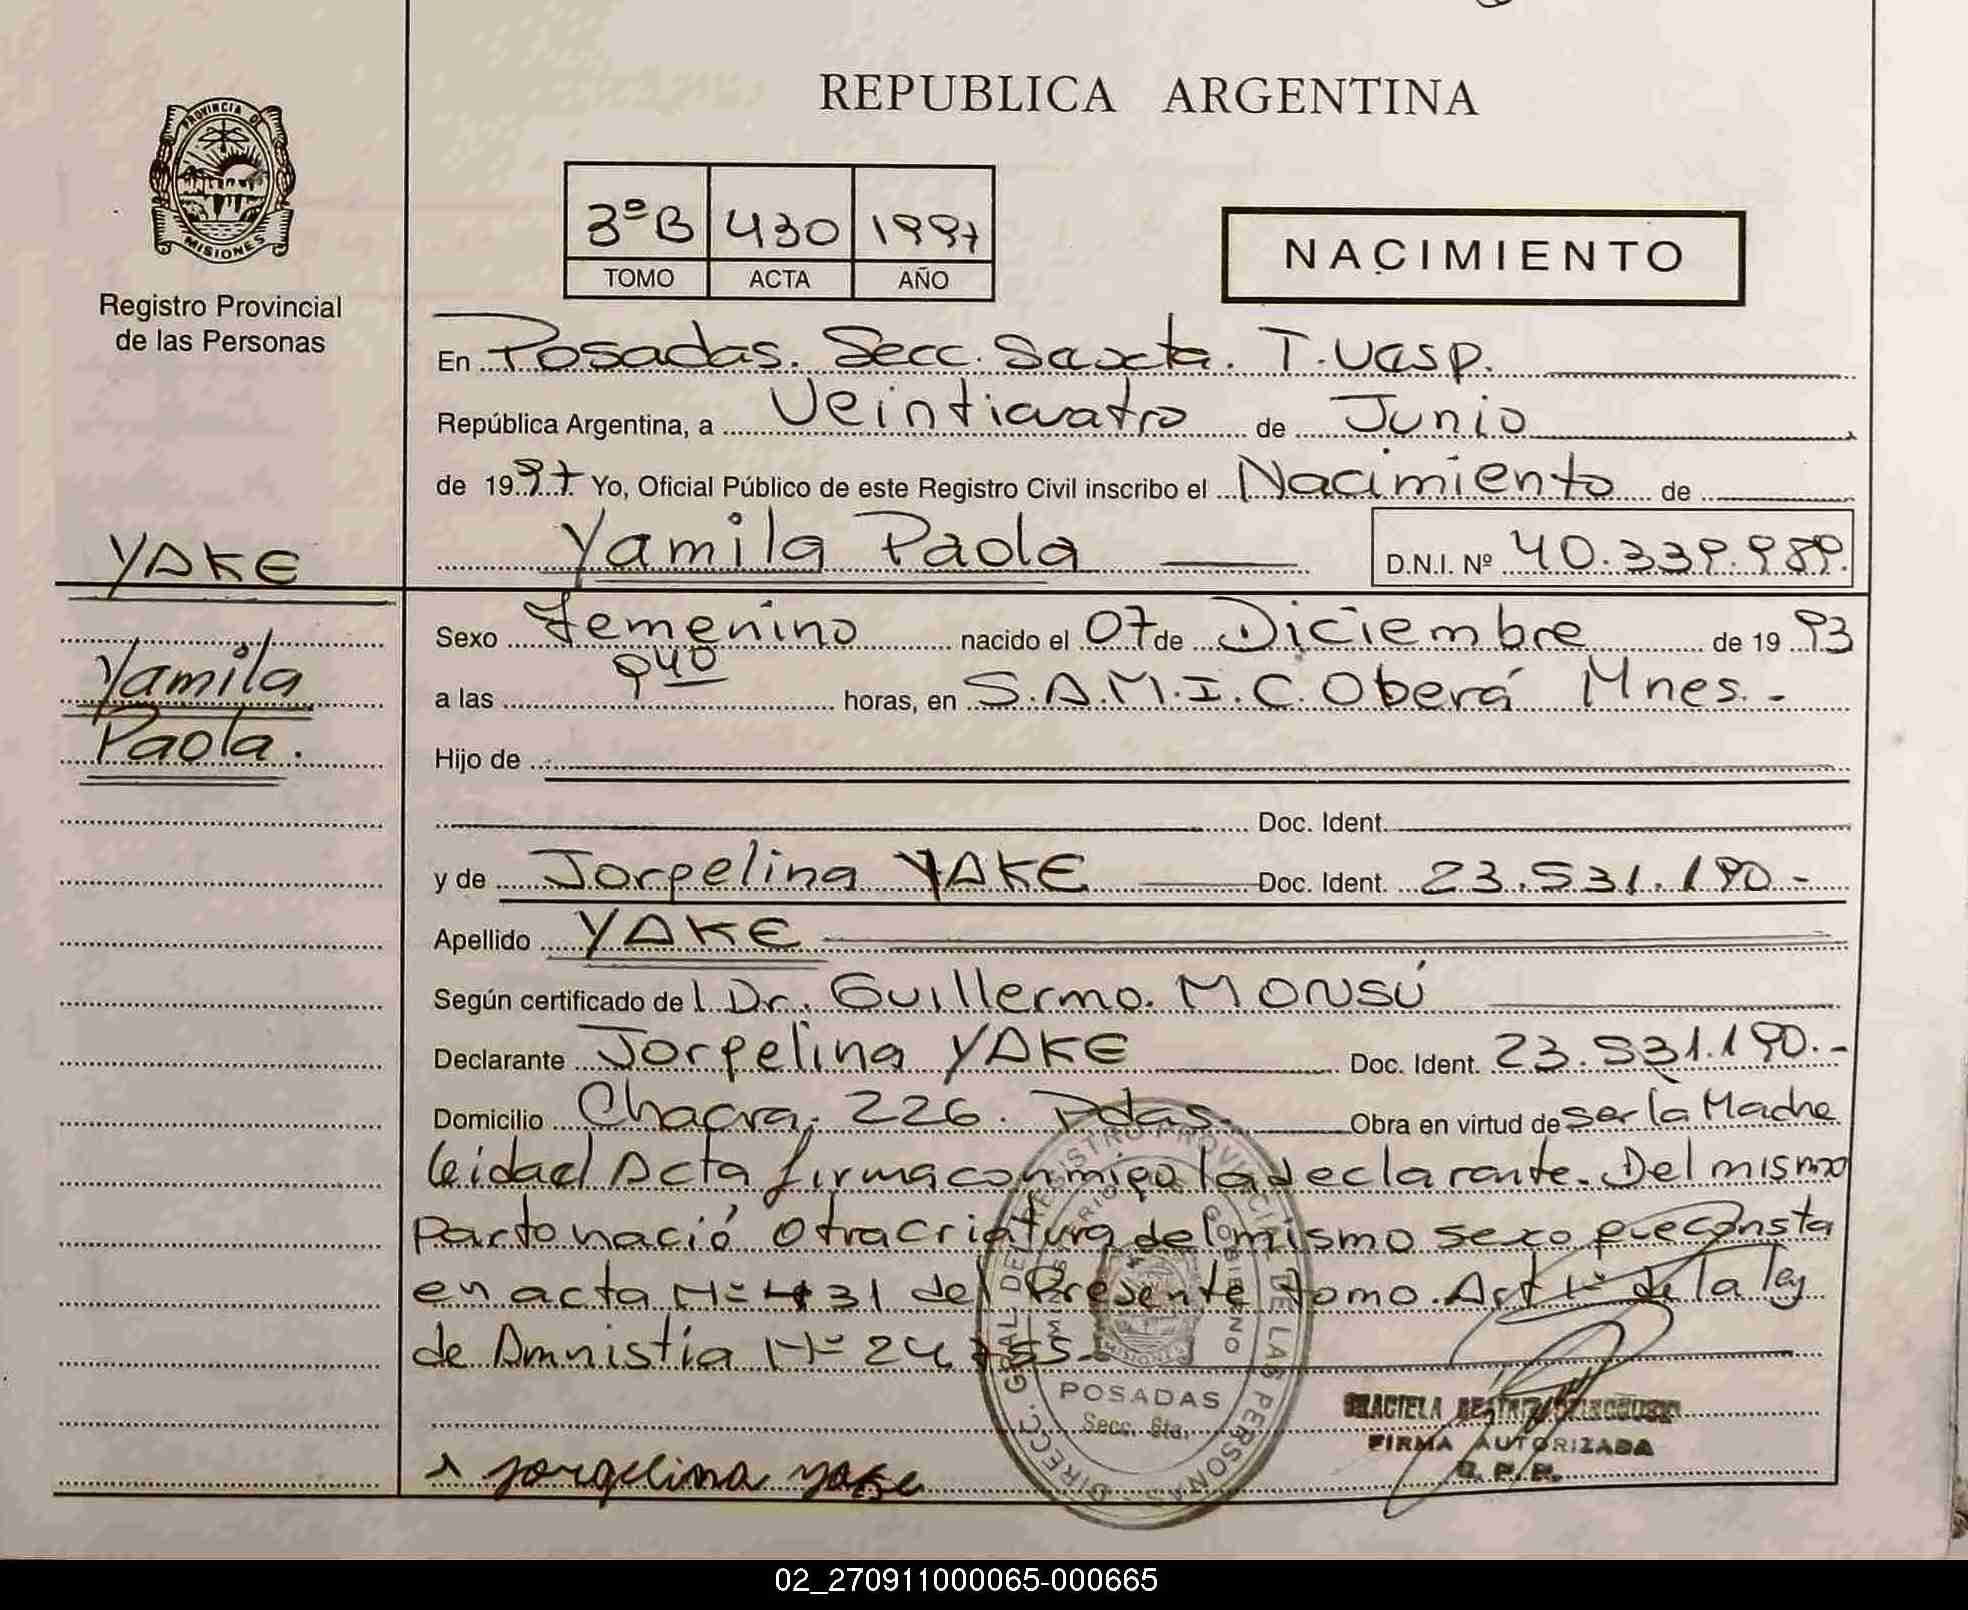 REPUBLICA ARGENTINA
PROVINCIA DE
MISIONES
Registro Provincial
de las Personas
3º B 430 1997
TOMO ACTA AÑO
NACIMIENTO
En Posadas. Secc. Saxcta. T. Uasp.
República Argentina, a Veinticuatro de Junio
de 1997. Yo, Oficial Público de este Registro Civil inscribo el Nacimiento de
Yamila Paola D.N.I. Nº 40.339.989.
YAKE
Yamila
Paola.
Sexo Femenino nacido el 07 de Diciembre de 1993
a las 9 40 horas, en S.A.M.I.C. Oberá Mnes. -
Hijo de
Doc. Ident.
y de Jorgelina YAKE Doc. Ident. 23.531.190.-
Apellido YAKE
Según certificado del Dr. Guillermo. MONSÚ
Declarante Jorgelina YAKE Doc. Ident. 23.531.190.-
Domicilio Chacra. 226. Pdas. Obra en virtud de ser la Madre
leida el Acta firma conmigo la declarante. Del mismo
parto nació otra criatura del mismo sexo que consta
en acta Nº 431 del Presente tomo. Art 1º de la ley
de Amnistía Nº 24.755-
DIRECC. GRAL DE REGISTRO PROVINCIAL DE LAS PERSONAS
MINISTERIO GOBIERNO
MISIONES
POSADAS
Secc. 6ta.
GRACIELA BEATRIZ
FIRMA AUTORIZADA
R. P. P.
Jorgelina yake
02_270911000065-000665